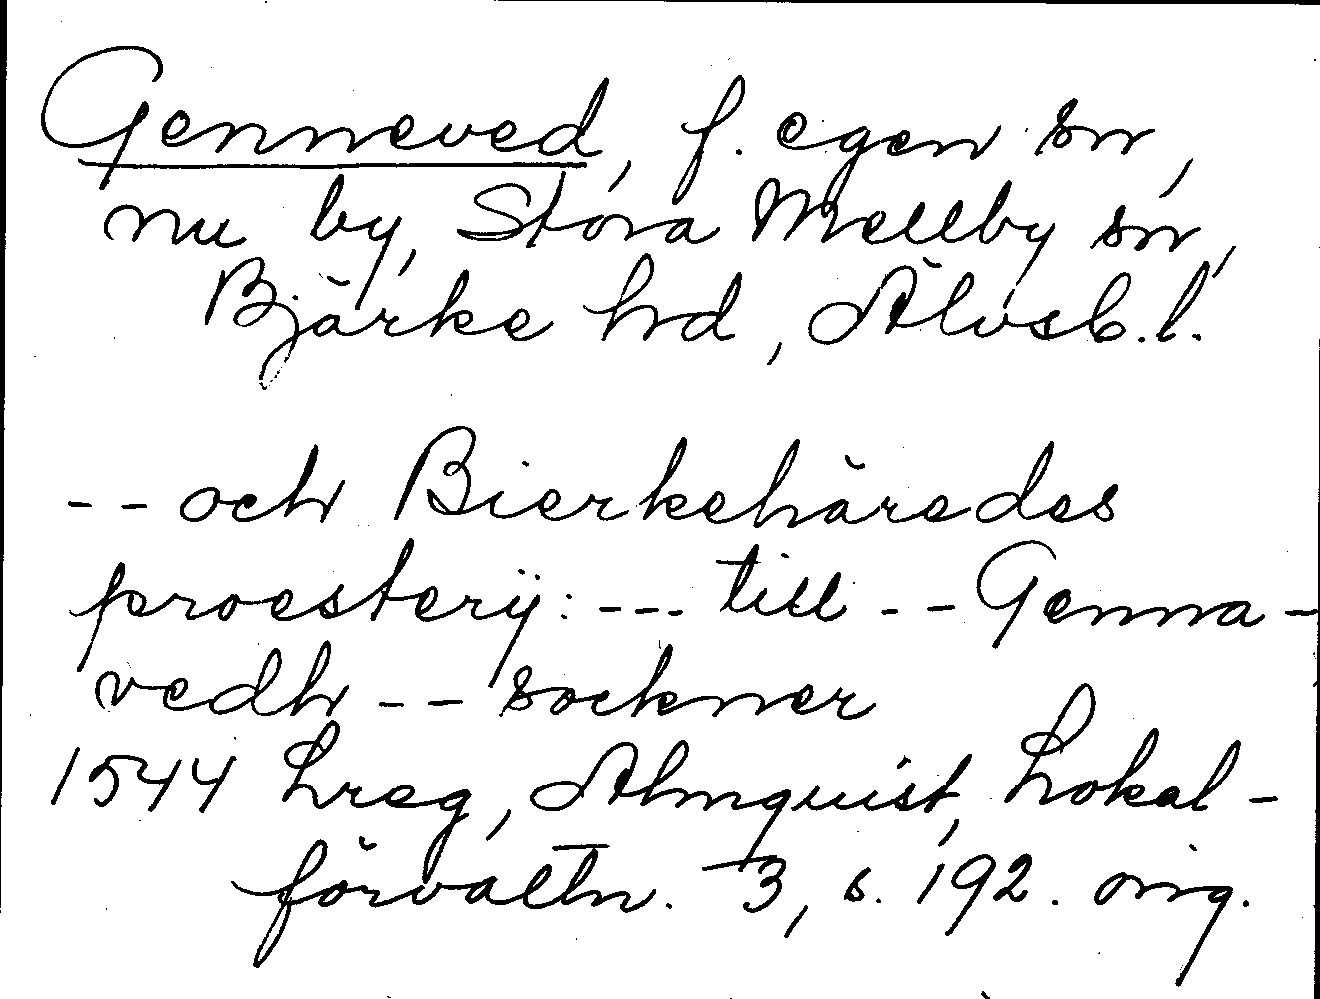 Genneved, f. egen sn,
nu by, Stora Mellby sn,
Bjärke hd, Älvsb. l.
-- och Bierkehäredes
proesterÿ: --- till -- Genna-
vedh -- sockner
1544 Lreg, Almquist, Lokal-
förvaltn. 3, s. 192. orig.